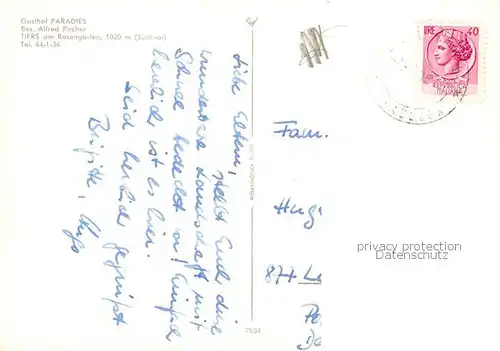 Gasthof PARADIES
Bes. Alfred Pircher
TIERS am Rosengarten, 1020 m (Südtirol)
Tel. 64-1-36
Liebe Eltern,
stellt Euch diese
wunderbare Landschaft mit
Schnee bedeckt vor! Einfach
herrlich ist es hier.
Seid herzlich gegrüßt
Brigitte, Hugo
7554
LIRE 40
REPUBBLICA
ITALIANA
Fam.
Hug
privacy protection
Datenschutz
874